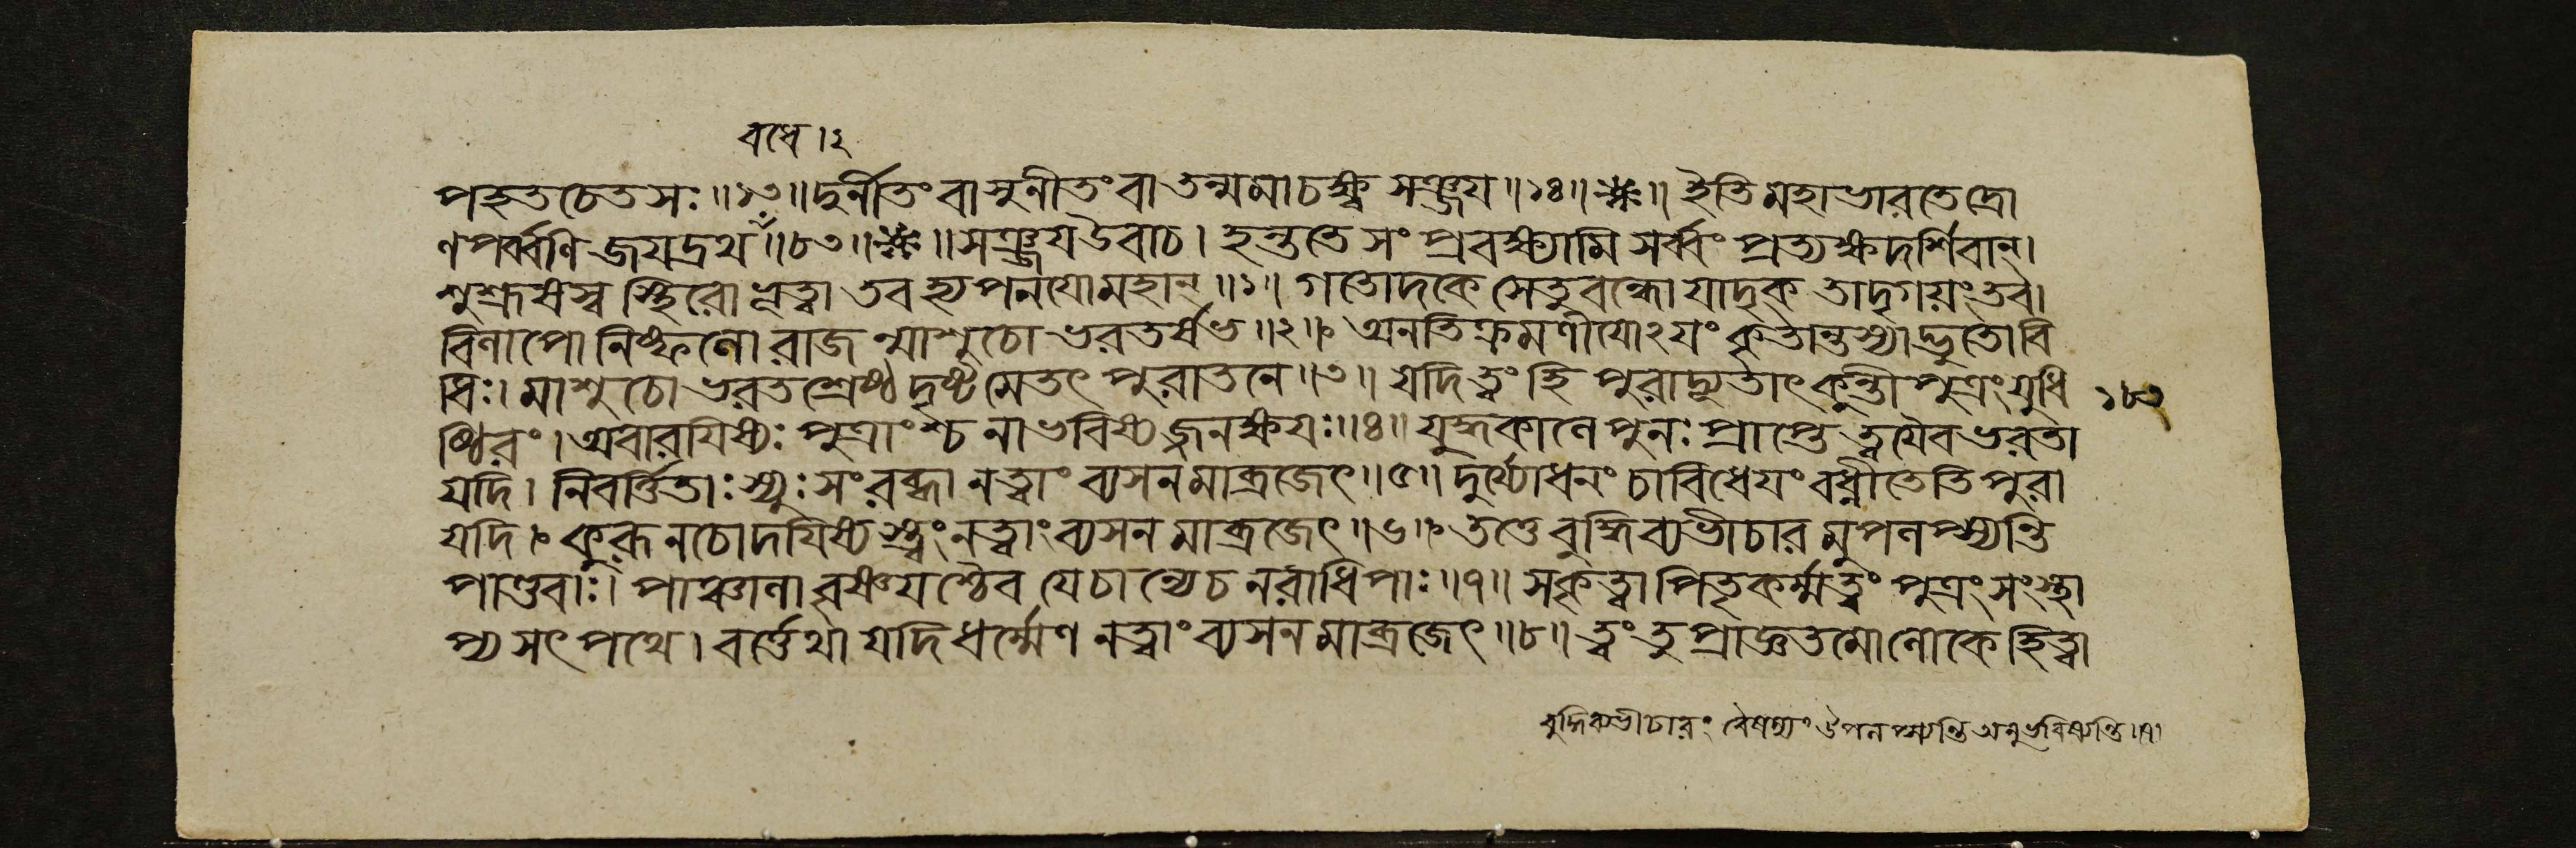 বধে।২
পহৃতচেতসঃ॥১৩॥দুর্নীতংবাসুনীতংবাতন্মমাচক্ষ্বসঞ্জয॥১৪॥❋॥ইতিমহাভারতেদ্রো
ণপর্ব্বণিজয়দ্রথ॥৮৩॥❋॥সঞ্জয়উবাচ।হন্ততেসংপ্রবক্ষ্যামিসর্ব্বংপ্রত্যক্ষদর্শিবান্।
শুশ্রূষস্বস্থিরোভূত্বাতবহ্যপনযোমহান্॥১॥গতোদকেসেতুবন্ধোযাদৃক্তাদৃগয়ংতব।
বিলাপোনিষ্ফলোরাজন্মাশুচোভরতর্ষভ॥২॥অনতিক্রমণীযোঽযংকৃতান্তস্যাদ্ভুতোবি
ধিঃ।মাশুচোভরতশ্রেষ্ঠদৃষ্টমেতৎপুরাতনে॥৩॥যদিত্বংহিপুরাদ্যূতাৎকুন্তীপুত্রংযুধি
ষ্ঠিরং।অবারযিষ্যঃপুত্রাংশ্চনাভবিষ্যজ্জনক্ষয়ঃ॥৪॥যুদ্ধকালেপুনঃপ্রাপ্তেত্বযৈবভরতা
যদি।নিবর্ত্তিতাঃস্যুঃসংরব্ধানত্বাংব্যসনমাব্রজেৎ॥৫॥দুর্য্যোধনংচাবিধেযংবধ্নীতেতিপুরা
যদি।কুরূনচোদযিষ্যস্ত্বংনত্বাংব্যসনমাব্রজেৎ॥৬॥তত্তেবুদ্ধিব্যভীচারমুপলপ্স্যন্তি
পাণ্ডবাঃ।পাঞ্চালাবৃষ্ণযশ্চৈবযেচান্যেচনরাধিপাঃ॥৭॥সকৃত্বাপিতৃকর্ম্মত্বংপুত্রংসংস্থা
প্যসৎপথে।বর্ত্তেথাযদিধর্ম্মেণনত্বাংব্যসনমাব্রজেৎ॥৮॥ত্বংতুপ্রাজ্ঞতমোলোকেহিত্বা
১৮৩
বুদ্ধিব্যভীচারংবৈষম্যংউপলপ্স্যন্তিঅনুভবিষ্যন্তি॥৭॥